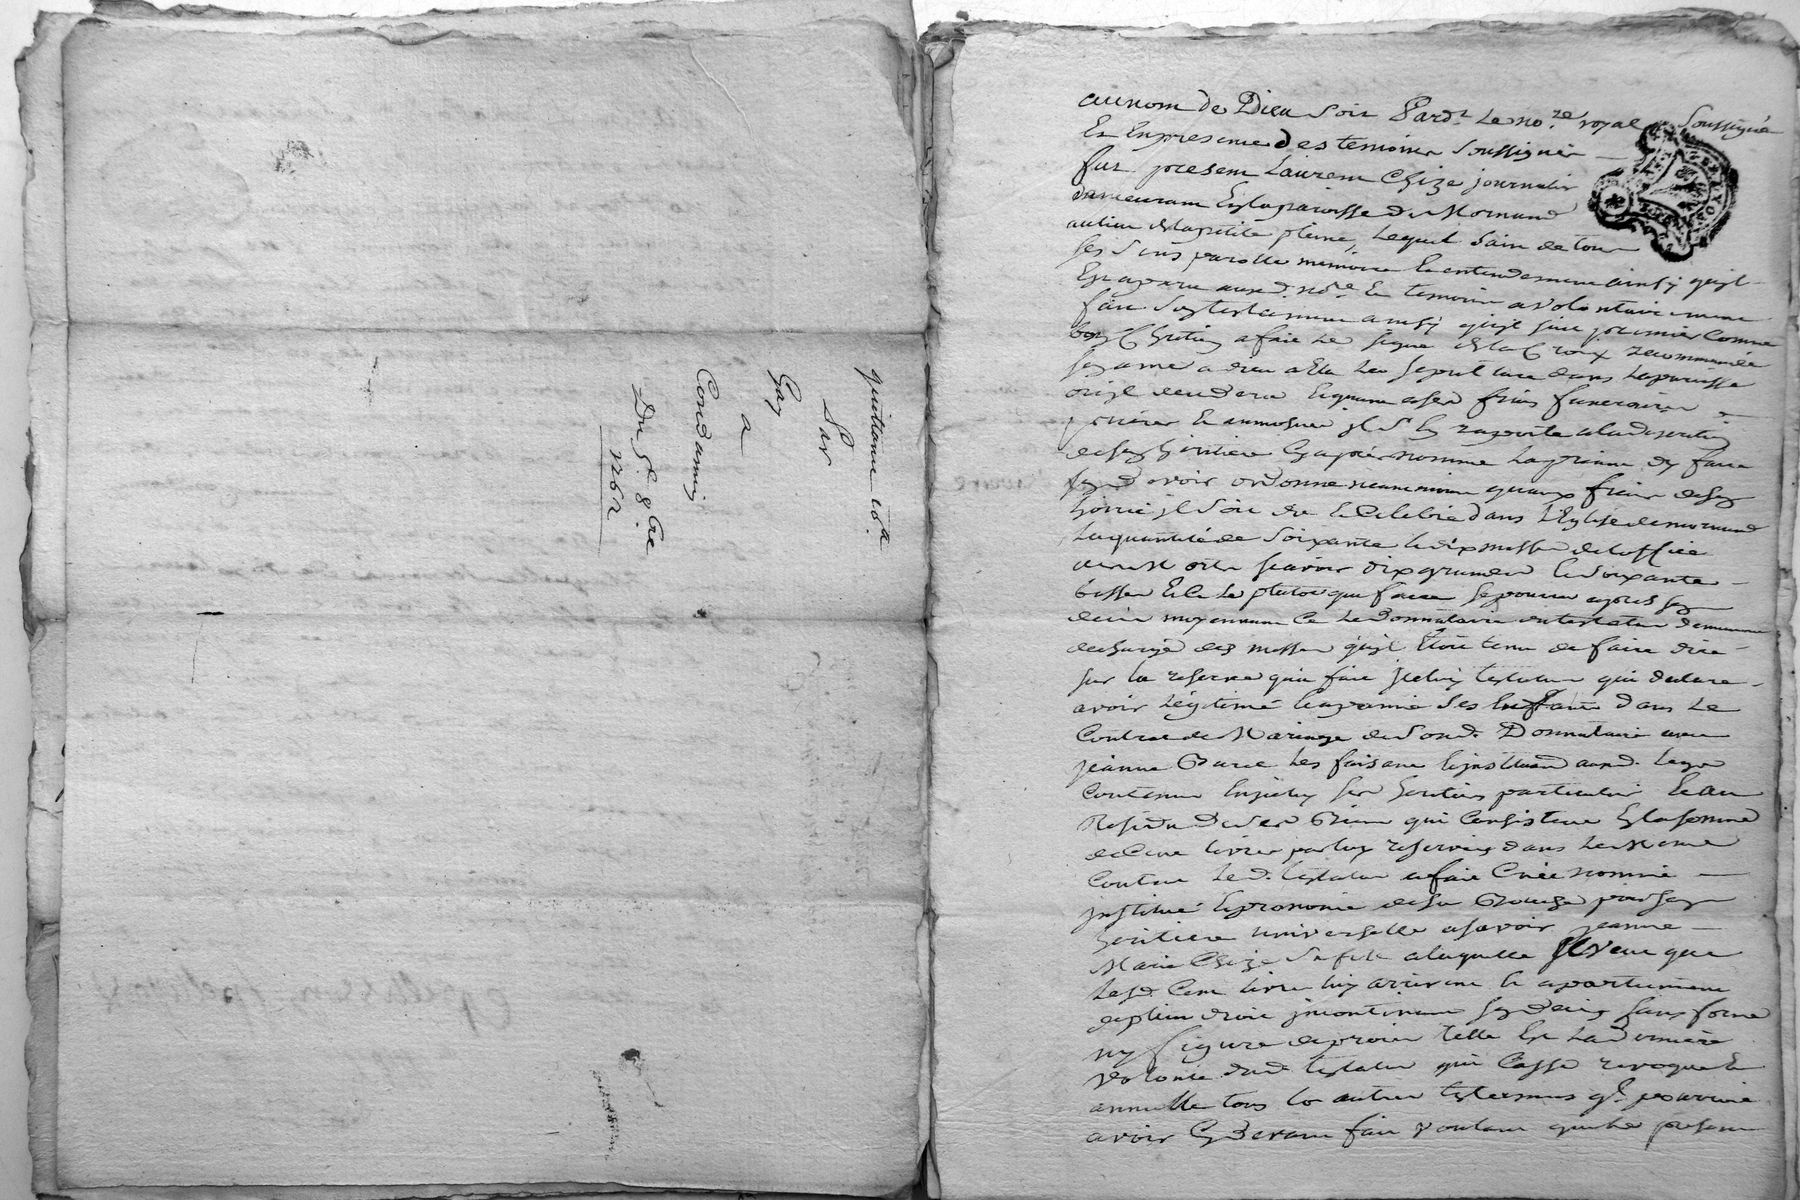 quittance co.
Par
Gay
a
Condamin
Du 5e 8bre
1762
au nom de Dieu Soit Pardt Le nore royal Soussigné
Et En presence Des temoins Soussignés
fut present Laurent Chize journalier
demeurant En la paroisse de Mornand
au lieu de la petite plaine, Lequel Sain de tous
ses Sens parolle memoire Et entendement ainsy qu'il
Est aparu aud. nore Et temoins a volontairement
fait Son testament ainsy qu'il suit premier Comme
bon Chretien a fait Le signe de la Croix recommandé
son ame a dieu Elu La Sepulture dans La paroisse
où il decedera Et quant a ses frais funeraires
prieres Et aumosnes il S'en raporte a la discretion
de son heritiere Cy après nommé La priant d'y faire
son devoir ordonne neanmoins qu'aux frais de son
hoirie il Soit dit Et Celebré Dans L'Eglise de mornand
La quantité de Soixante Et dix messes de L'office
des morts scavoir dix grandes Et Soixante
basses Et Ce Le plutot que faire Se pourra après son
deces moyennant Ce Le Donnataire du testateur demeurera
dechargé des messes qu'il Etoit tenu de faire dire
sur la reserve qu'a fait led. testateur qui declare
avoir Légitimé Et apanné Ses Enffants dans Le
Contrat de Mariage de Sond. Donnataire avec
jeanne les faisant Et instituant aud. Legs
Contenu Ses heritiers particuliers Et au
Residu De Ses Biens qui Consistent En la somme
de Cent livres par luy reservée dans Le Meme
Contrat Led. testateur a fait Créé nommé
institué Et prononcé de Sa Bouche pour son
heritiere universelle a scavoir jeanne
Marie Chize Sa fille a laquelle Il veut que
Lesd. Cent livres luy arrivent Et apartiennent
de plein droit incontinant son deces sans forme
ny figure de procès telle Est La derniere
volonté dud. testateur qui Casse revoque Et
annulle tous les autres testaments qu'il pourroit
avoir Cy Devant fait voulant que le present